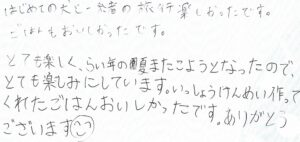 はじめての犬と一緒の旅行楽しかったです。
ごはんもおいしかったです。
とても楽しく、らい年の夏またこようとなったので、
とても楽しみにしています。いっしょうけんめい作って
くれたごはんおいしかったです。ありがとう
ございます